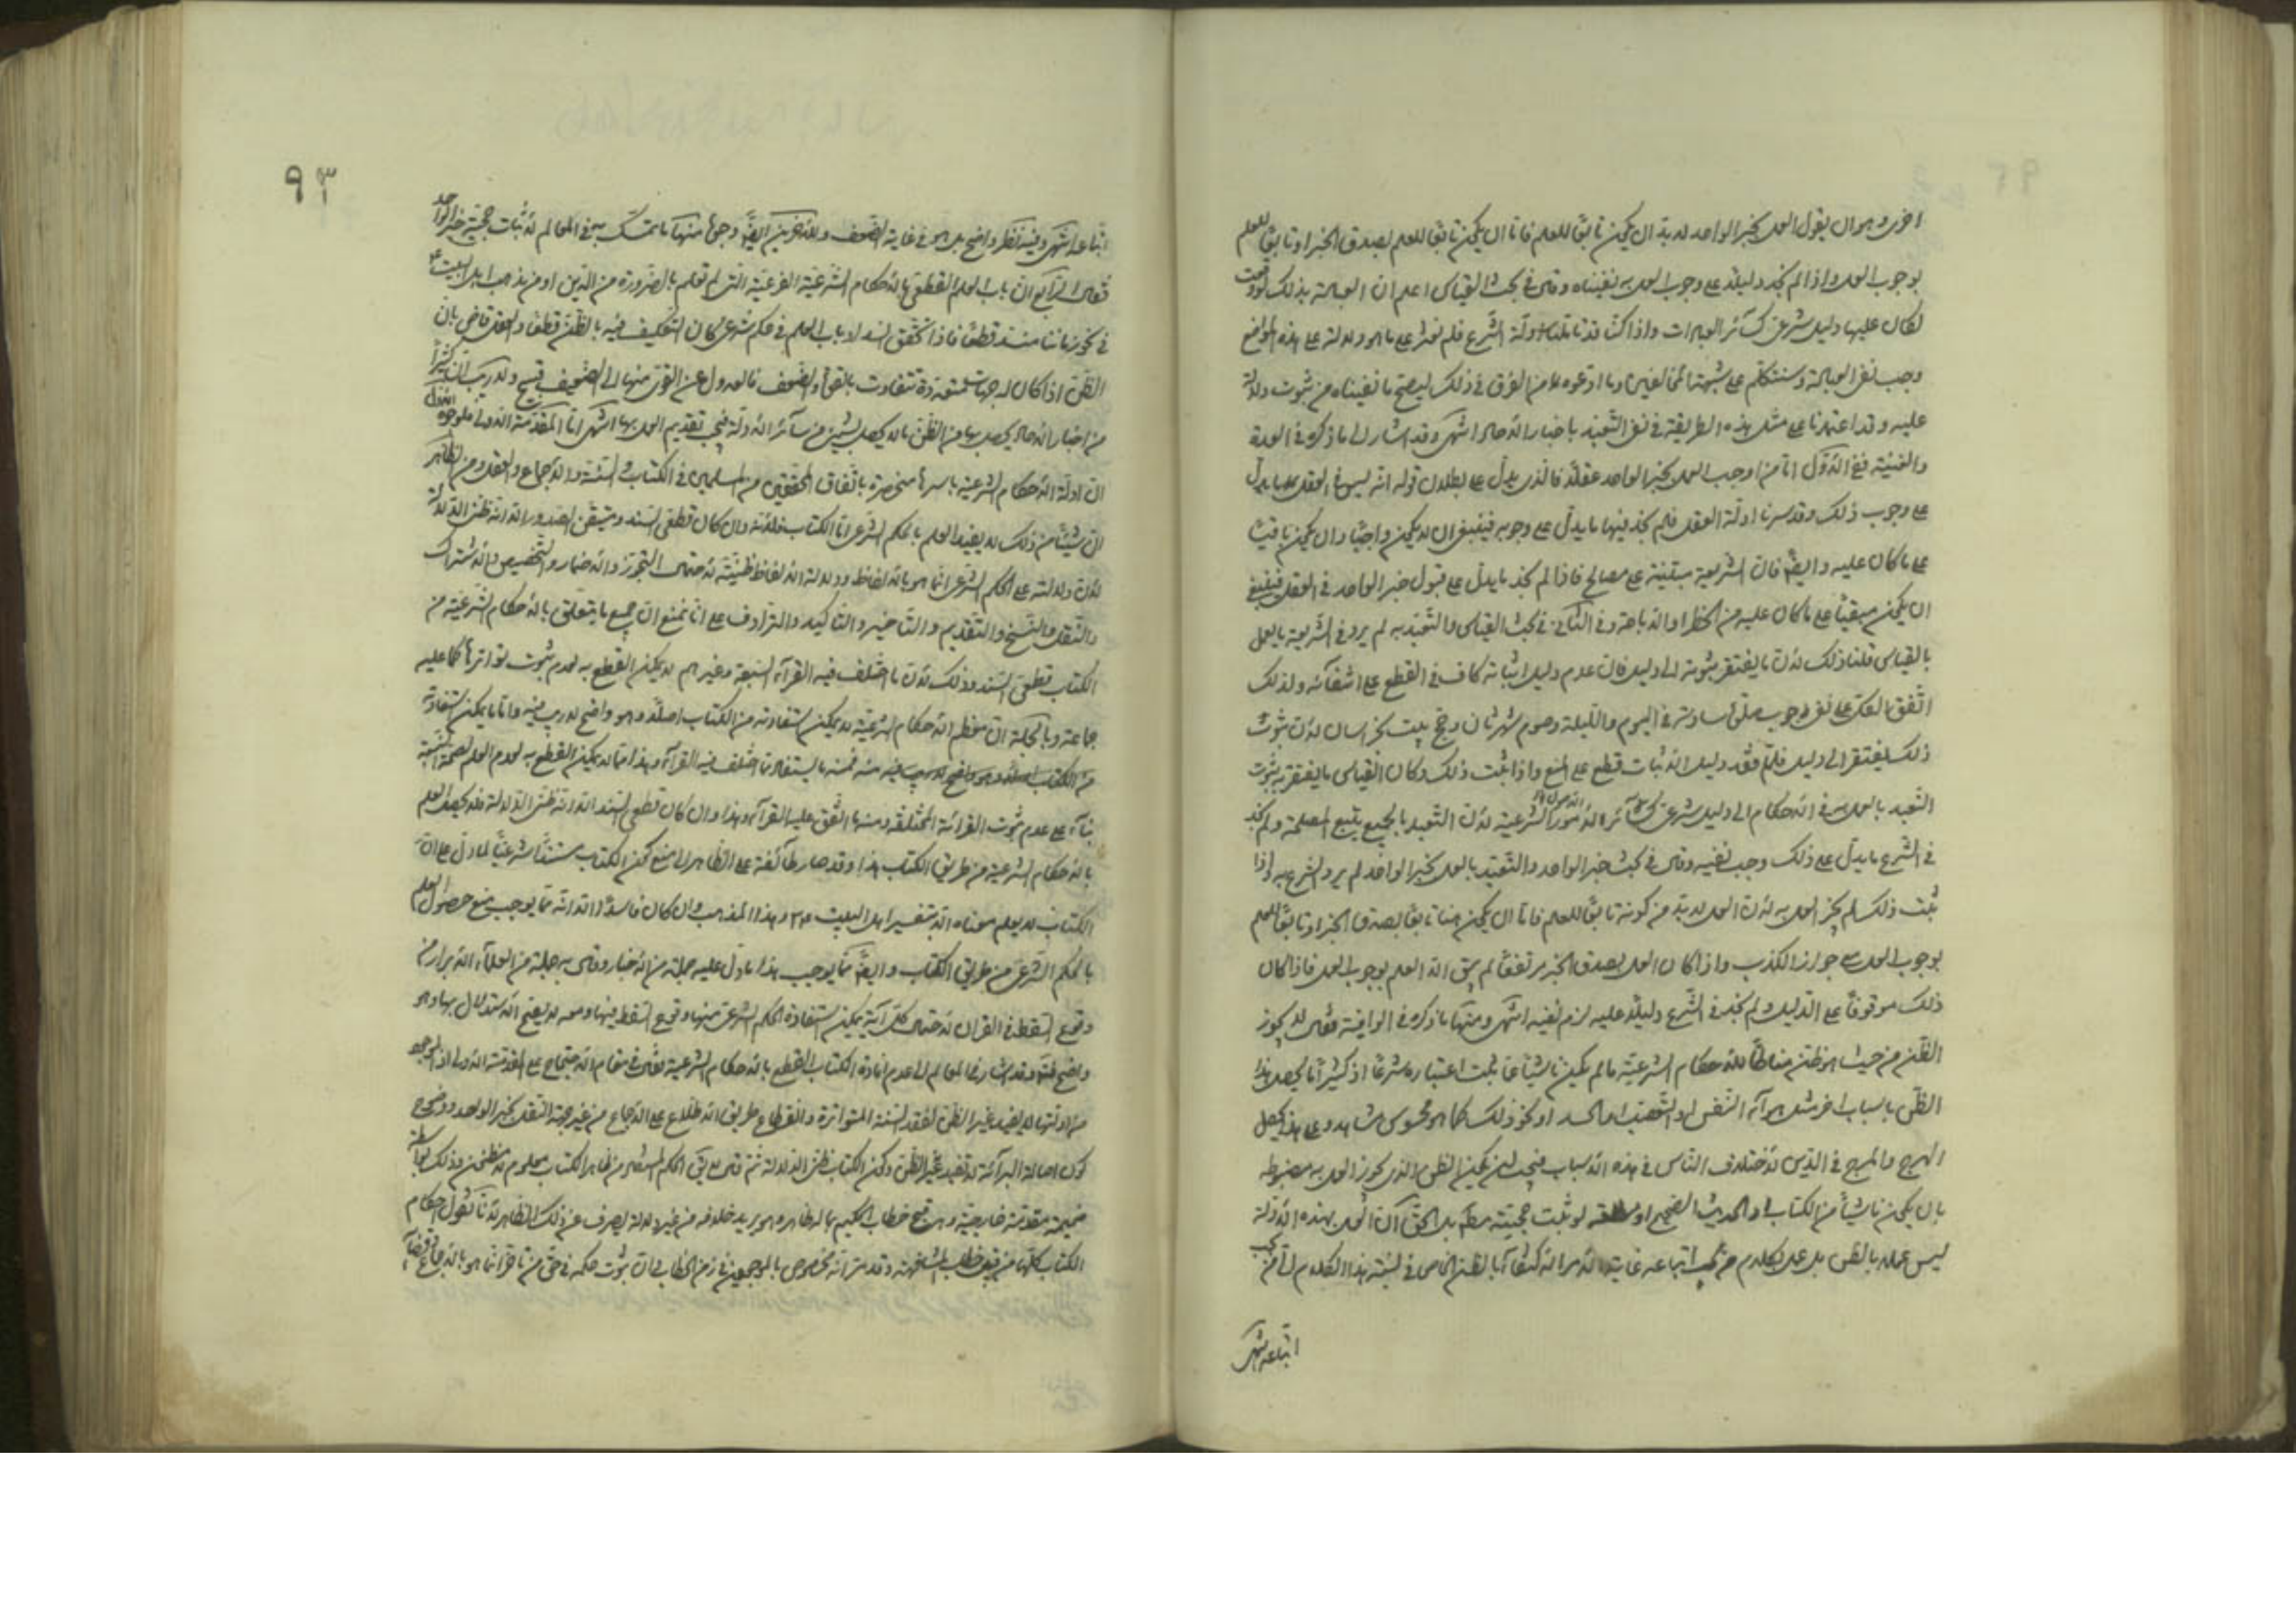 اخرى وهو ان يقول العمل بخبر الواحد لا بد ان يكون تابعًا للعلم فاما ان يكون تابعًا للعلم بصدق الخبر او تابعًا للعلم
بوجوب العمل واذا لم نجد دليلا على وجوب العمل به نفيناه وقال في بحث القياس اعلم ان العبادة بذلك لو وقعت
لكان عليها دليل شرعي كسائر العبادات واذا كنا قد تأملنا ادلة الشرع فلم نعثر على ما هو دلالة على هذه المواضع
وجب نفي العبادة وسنتكلم على شبهة المخالفين وما ادعوه من الفرق في ذلك ليصح ما نفيناه من ثبوت دلالة
عليه وقد اعتمدنا على مثل هذه الطريقة في نفي التعبد باخبار الآحاد انتهى وقد اشار الى ما ذكره في العدة
والغنية ففي الاول اما من اوجب العمل بخبر الواحد عقلا فالذي يدل على بطلان قوله انه ليس في العقل ما يدل
على وجوب ذلك وقد سبرنا ادلة العقل فلم نجد فيها ما يدل على وجوبه فينبغي ان لا يكون واجبًا وان يكون باقيًا
على ما كان عليه وايضًا فان الشريعة مبنية على مصالح فاذا لم نجد ما يدل على قبول خبر الواحد في العقل فينبغي
ان يكون مبقيًا على ما كان عليه من الحظر او الاباحة وفي الثاني في بحث القياس والتعبد به لم يرد في الشريعة بالعمل
بالقياس قلنا ذلك لان ما يفتقر ثبوته الى دليل فان عدم دليل اثباته كاف في القطع على انتفائه ولذلك
اتفق العقلاء على نفي وجوب صلوة سادسة في اليوم والليلة وصوم شهر ثان وحج بيت بخراسان لان ثبوت
ذلك ليفتقر الى دليل فلما فقد دليل الاثبات قطع على المنع واذا ثبت ذلك وكان القياس ما يفتقر به ثبوت
التعبد بالعمل به في الاحكام الى دليل شرعي كسائر الامور الشرعية لان التعبد بالجميع يتبع المصلحة ولم نجد
في الشرع ما يدل على ذلك وجب نفيه وقال في بحث خبر الواحد والتعبد بالعمل بخبر الواحد لم يرد الشرع به واذا
ثبت ذلك لم يجز العمل به لان العمل لا بد من كونه تابعًا للعلم فاما ان يكون هنا تابعًا بصدق الخبر او تابعًا للعلم
بوجوب العمل مع جواز الكذب واذا كان العمل بصدق الخبر مرتفعًا لم يبق الا العلم بوجوب العمل فاذا كان
ذلك موقوفًا على الدليل ولم نجد في الشرع دليلا عليه لزم نفيه انتهى ومنها ما ذكره في الوافية فقال لا يجوز
الظن من حيث هو ظن مناطًا للاحكام الشرعية ما لم يكن ناشيًا عما ثبت اعتباره شرعًا اذ كثيرًا ما يحصل هذا
الظن باسباب اخر مثل هوآء النفس او التعصب او الحسد او نحو ذلك كما هو محسوس مشاهد وعلى هذا يحصل
الهرج والمرج في الدين لاختلاف الناس في هذه الاسباب فيجب ان يكون الظن الذي يجوز العمل به مضبوطة
بان يكون ناشيًا من الكتاب او الحديث الصحيح او لو ثبت حجيته مطلقا بل الحق ان العمل بهذه الادلة
ليس عملا بالظن بل عمل بكلام من يجب اتباعه غاية الامر الاكتفاء بالظن الخاص في نسبة هذا الكلام الى من يجب
اتباعه انتهى
٩٣
اتباعه انتهى وفيه نظر واضح بل هو في غاية الضعف وللآخرين ايضًا وجوه منها ما تمسك به في المعالم لاثبات حجية خبر الواحد
فقال الرابع ان باب العلم القطعي بالاحكام الشرعية الفرعية التي لم تعلم بالضرورة من الدين او من مذهب اهل البيت ع
في نحو زماننا منسد قطعًا فاذا تحقق انسداد باب العلم في حكم شرعي كان التكليف فيه بالظن قطعًا والعقل قاض بان
الظن اذا كان له جهات متعددة تتفاوت بالقوة والضعف فالعدول عن القوي منها الى الضعيف قبيح ولا ريب ان كثيرًا
من اخبار الآحاد يحصل بها من الظن ما لا يحصل بشيء من سائر الادلة فيجب تقديم العمل بها انتهى اما المقدمة الاولى فلوجوه الاول
ان ادلة الاحكام الشرعية باسرها منحصرة باتفاق المحققين من المسلمين في الكتاب والسنة والاجماع والعقل ومن الظاهر
ان شيئًا من ذلك لا يفيد العلم بالحكم الشرعي اما الكتاب فلانه وان كان قطعي السند ومتيقن الصدور الا انه ظني الدلالة
لان دلالته على الحكم الشرعي انما هو بالالفاظ ودلالة الالفاظ ظنية لاحتمال التجوز والاضمار والتخصيص والاشتراك
والنقل والنسخ والتقديم والتاخير والتاكيد والترادف على انا نمنع ان جميع ما يتعلق بالاحكام الشرعية من
الكتاب قطعي السند وذلك لان ما اختلف فيه القرآء السبعة وغيرهم لا يمكن القطع به لعدم ثبوت تواترها كما عليه
جماعة وبالجملة ان معظم الاحكام الشرعية لا يمكن استفادته من الكتاب اصلا وهو واضح لا ريب فيه واما ما يمكن استفادته
من الكتاب فمنه ما يستفاد مما اختلف فيه القرآء وهذا مما لا يمكن القطع به لعدم العلم بصحة النسبة
بناء على عدم ثبوت القراءة المختلفة ومنه ما اتفق عليه القرآء وهذا وان كان قطعي السند الا انه ظني الدلالة فلا يحصل العلم
بالاحكام الشرعية من طريق الكتاب هذا وقد صار طائفة على الظاهر الى منع كون الكتاب مستندًا شرعيًا لما دل على ان
الكتاب لا يعلم معناه الا بتفسير اهل البيت ع وهذا المذهب وان كان فاسدًا الا انه مما يوجب منع حصول العلم
بالحكم الشرعي من طريق الكتاب وايضًا مما يوجب هذا ما دل عليه جملة من الاخبار وقال به جملة من العلماء الابرار من
وقوع السقط في القرآن لاحتمال كل آية يمكن استفادة الحكم الشرعي منها وقوع السقط فيها ومعه لا يصح الاستدلال بها وهو
واضح وقد اشار في المعالم الى عدم افادة الكتاب القطع بالاحكام الشرعية فقال في مقام الاحتجاج على المقدمة الاولى اذ الموجود
من ادلتها لا يفيد غير الظن لفقد السنة المتواترة وانقطاع طريق الاطلاع على الاجماع من غير جهة النقل بخبر الواحد ووضوح
كون اصالة البرائة لا تفيد غير الظن وكون الكتاب ظني الدلالة ثم قال لا يق الحكم المستفاد من ظاهر الكتاب معلوم لا مظنون وذلك بواسطة
ضميمة مقدمة خارجية وهي قبح خطاب الحكيم بما له ظاهر وهو يريد خلافه من غير دلالة يصرف عن ذلك الظاهر لانا نقول احكام
الكتاب كلها من قبيل خطاب المشافهة وقد مر انه مخصوص بالموجودين في زمن الخطاب وان ثبوت حكمه في حق من تاخر انما هو بالاجماع وقضاء